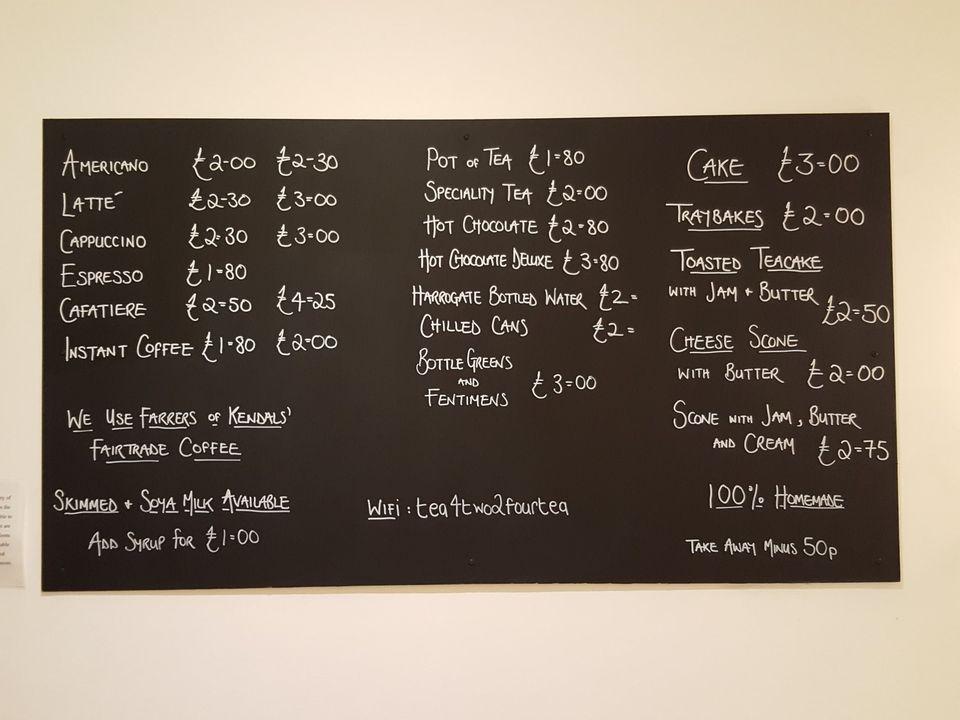 AMERICANO £2-00 £2-30
LATTÉ £2-30 £3=00
CAPPUCCINO £2=30 £3=00
ESPRESSO £1-80
CAFATIERE £2=50 £4=25
INSTANT COFFEE £1-80 £2=00
WE USE FARRERS of KENDALS'
FAIRTRADE COFFEE
SKIMMED + SOYA MILK AVAILABLE
ADD SYRUP FOR £1=00
POT OF TEA £1=80
SPECIALITY TEA £2=00
HOT CHOCOLATE £2=80
HOT CHOCOLATE DELUXE £3=80
HARROGATE BOTTLED WATER £2=
CHILLED CANS £2=
BOTTLE GREENS
AND
FENTIMENS £3=00
WIFI : tea4two2fourtea
CAKE £3=00
TRAYBAKES £2=00
TOASTED TEACAKE
WITH JAM + BUTTER £2=50
CHEESE SCONE
WITH BUTTER £2=00
SCONE WITH JAM, BUTTER
AND CREAM £2=75
100% HOMEMADE
TAKE AWAY MINUS 50p